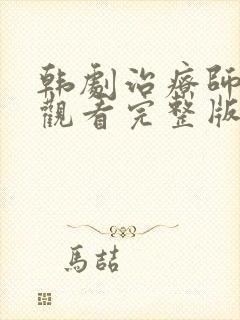 韩劇治療師
觀看完整版
馬喆